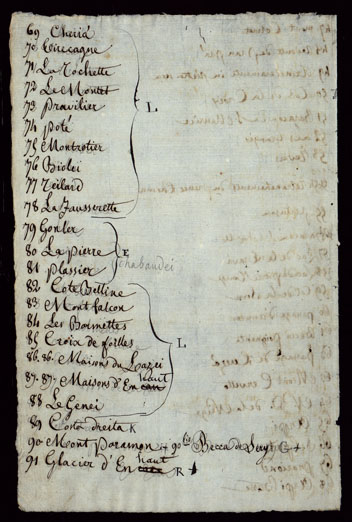 69 Cheria
70 Cuccagne
71 La Rochette
72 Le Montet
73 Pravilier
74 poté
75 Montrotier
76 Biolei
77 Teilard
78 La Fausserette
L
79 Gonler
80 La Pierre
81 Plassier
E
chabaudei
82 Cote Belline
83 Mont falcon
84 Les Boimettes
85 Croix de folles
86. 86. Maisons du Lazei
87. 87. Maisons d'En haut
88 Le Genei
L
89 Coita dresta K
90 Mont Poramon + 90 bis Becca de C +
91 Glacier d'En haut R